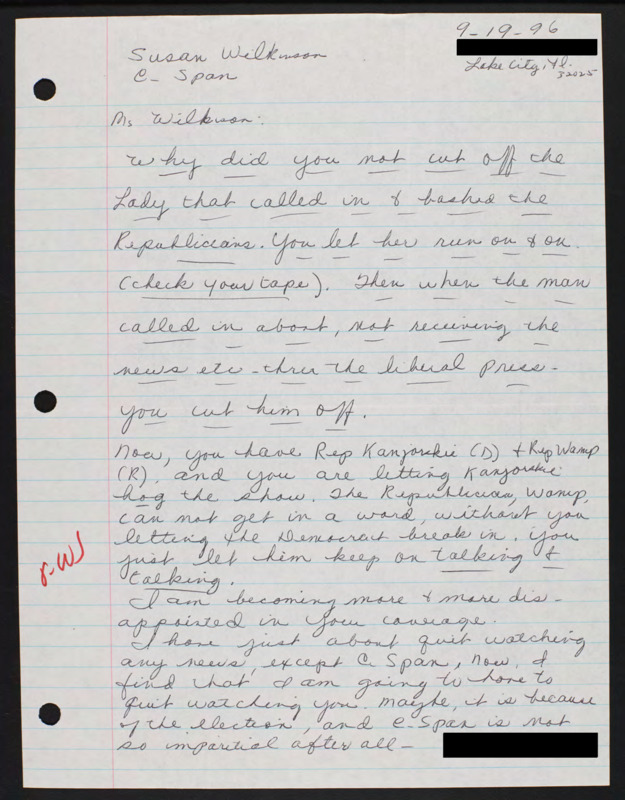 9-19-96
Susan Wilkinson
C- Span
Lake City, Fl.
32025
Ms Wilkinson:
Why did you not cut off the
Lady that called in & bashed the
Republicians. You let her run on & on.
(check your tape). Then when the man
called in about, not receiving the
news etc - thru the liberal press -
you cut him off.
Now, you have Rep Kanjorskie (D) & Rep Wamp
(R), and you are letting Kanjorskie
hog the show. The Republician, Wamp,
can not get in a word, without you
letting the Democrat break in. You
just let him keep on talking &
talking.
I am becoming more & more dis-
appointed in your coverage.
I have just about quit watching
any news, except C. Span, now, I
find that I am going to have to
quit watching you. Maybe, it is because
of the election, and C-Span is not
so impartial after all -